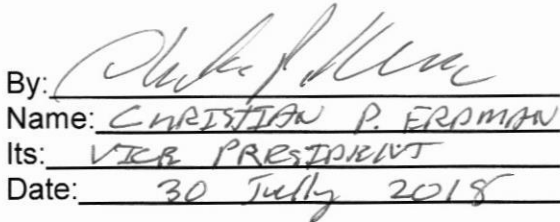 By:
Name: CHRISTIAN P. ERDMAN
Its: VICE PRESIDENT
Date: 30 July 2018